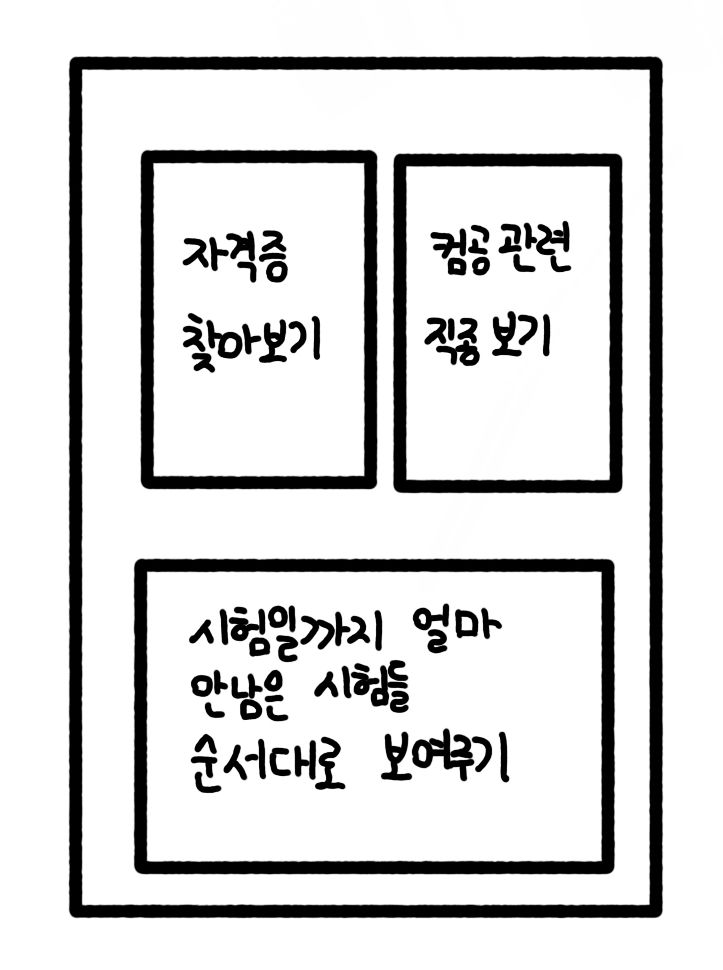 자격증
찾아보기
컴공 관련
직종 보기
시험일까지 얼마
안남은 시험들
순서대로 보여주기